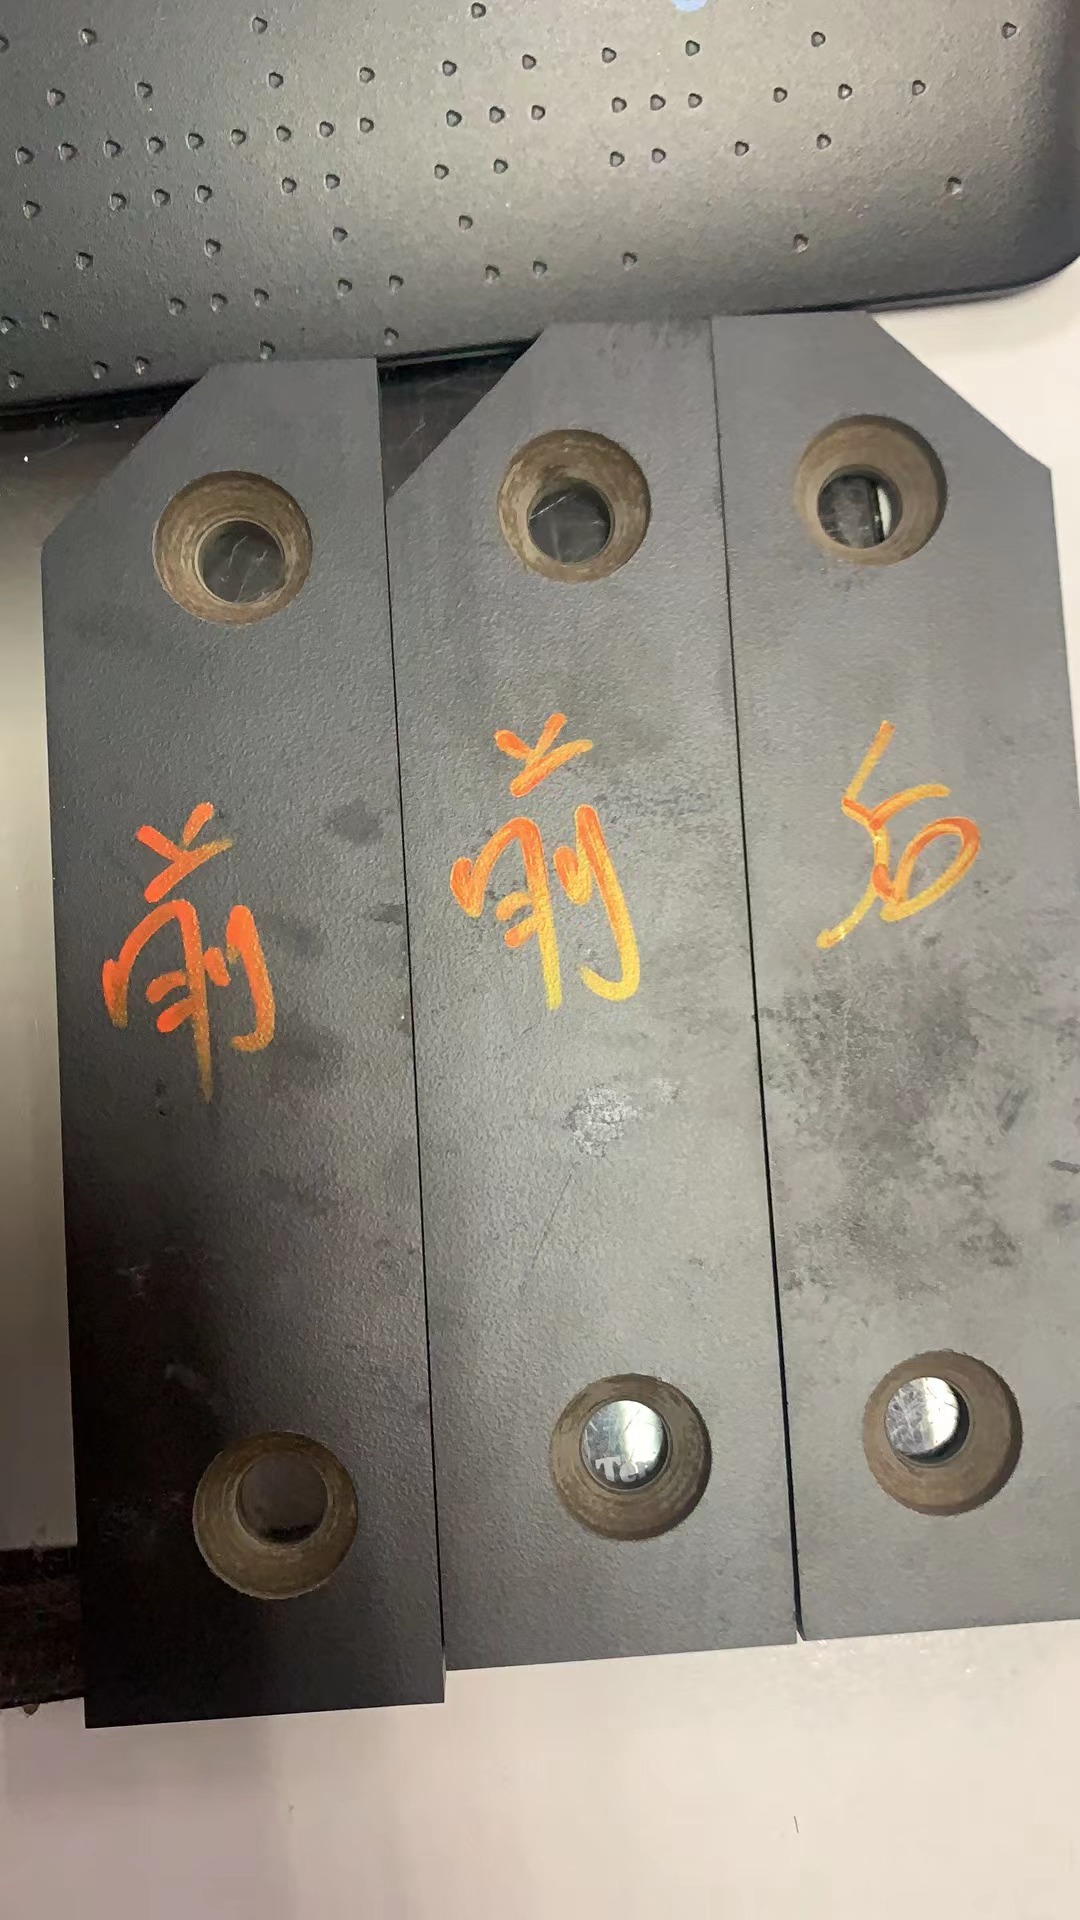 前
前
后
Te